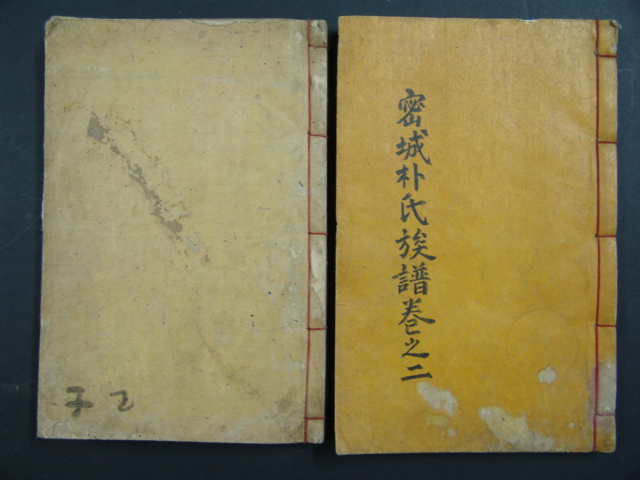 密城朴氏族譜卷之二